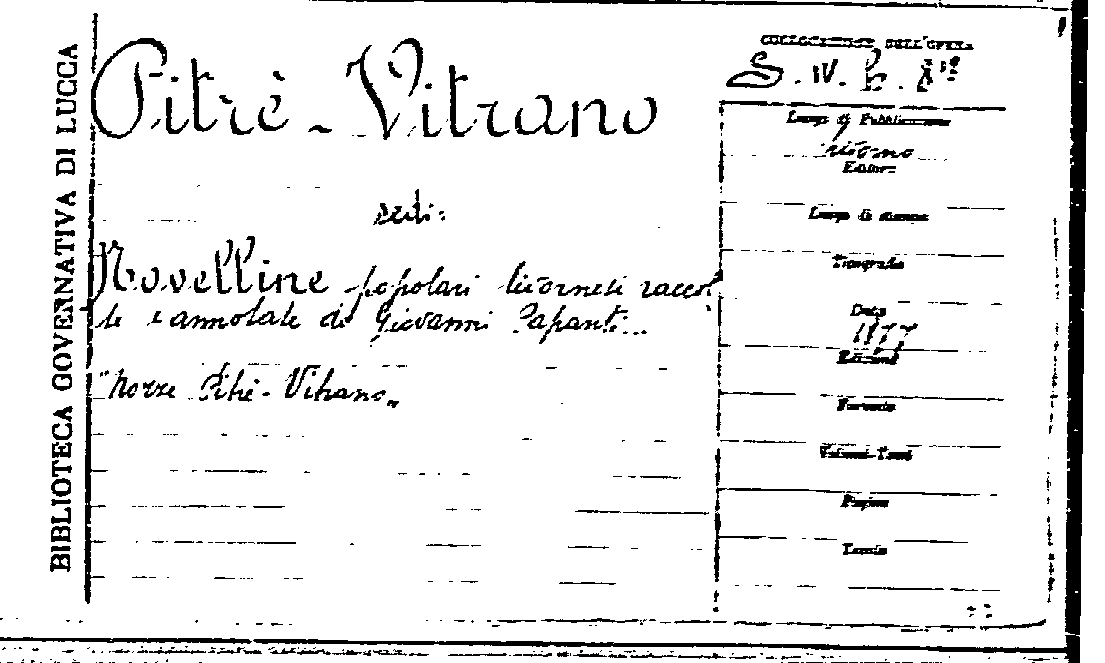 BIBLIOTECA GOVERNATIVA DI LUCCA
Pitrè - Vitrano
vedi:
Novelline popolari livornesi raccol
te e annotate da Giovanni Papanti...
"Nozze Pitrè - Vitrano"
COLLOCAZIONE DELL'OPERA
Luogo di Pubblicazione
Livorno
Editore
Luogo di stampa
Tipografia
Data
1877
Edizione
Formato
Volumi-Tomi
Pagine
Tavole